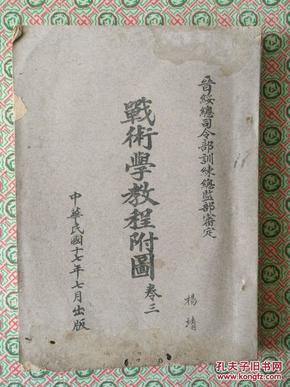 晉綏總司令部訓練總監部審定
戰術學教程附圖 卷三
中華民國十七年七月出版
楊靖
孔夫子旧书网